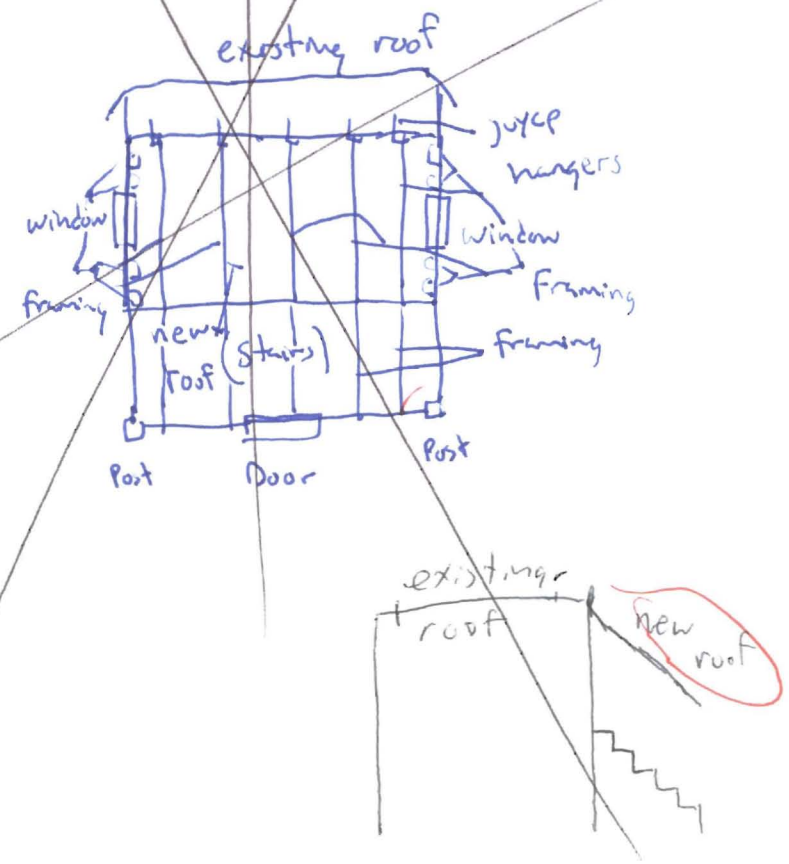 existing roof
hangers
window
window
framing
framing
new
roof
(Stairs)
framing
Post
Door
Post
existing
roof
new
roof